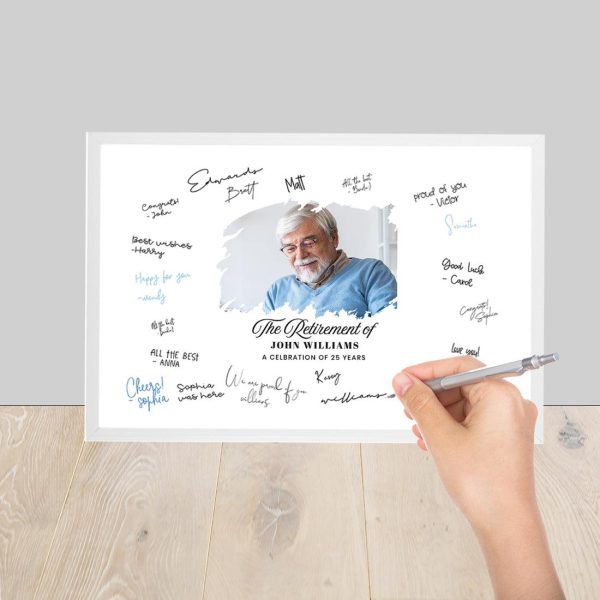 Edwards
Brett
Matt
All the best
Congrats!
- John
proud of you
- Victor
Samantha
Best wishes
-Harry
Happy for you
-wendy
Good luck
- Carol
Congrats!
Sophia
All the best
The Retirement of
JOHN WILLIAMS
A CELBRATION OF 25 YEARS
love you!
ALL THE BEST
- ANNA
Cheers!
- sophia
Sophia
was here
We are proud of you
williams
Kasey
williams